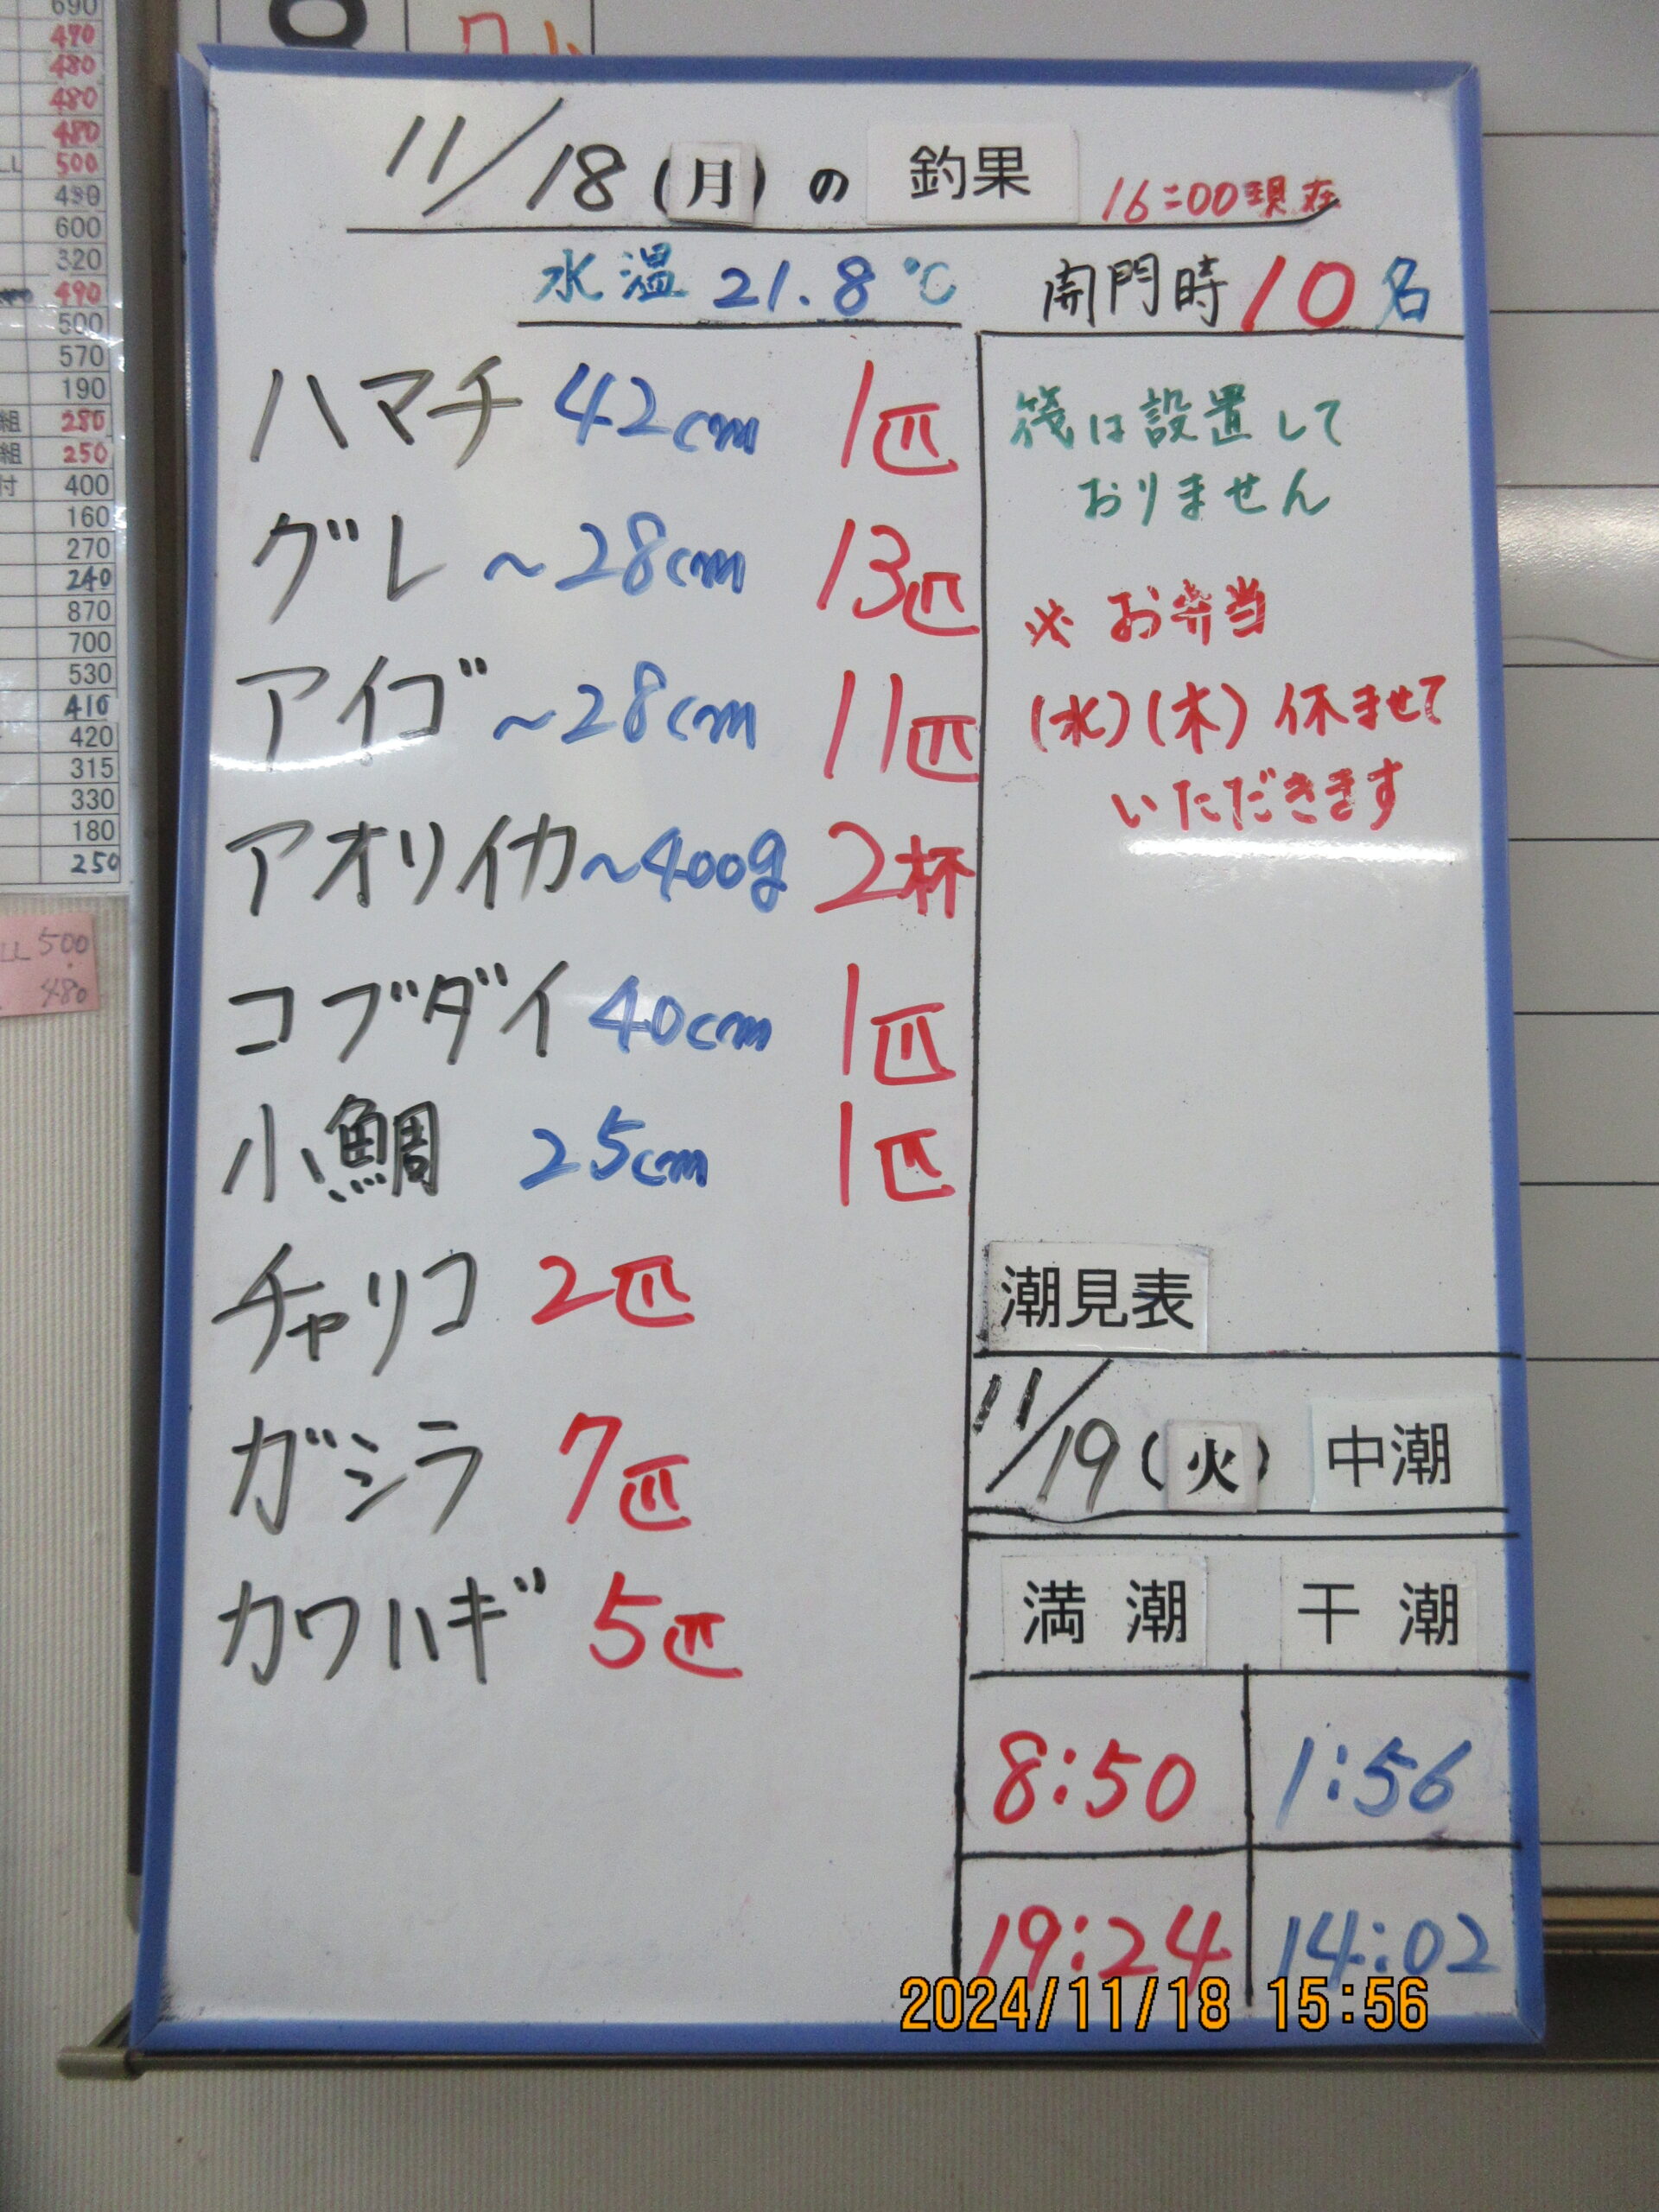 690
470
480
480
480
LL 500
490
600
320
490
500
570
190
組 280
組 250
付 400
160
270
240
870
700
530
410
420
315
330
180
250
LL 500
480
11/18(月)の 釣果 16:00現在
水温 21.8℃ 開門時10名
ハマチ 42cm 1匹
グレ ~28cm 13匹
アイゴ ~28cm 11匹
アオリイカ ~400g 2杯
コブダイ 40cm 1匹
小鯛 25cm 1匹
チャリコ 2匹
ガシラ 7匹
カワハギ 5匹
筏は設置して
おりません
※ お弁当
(水)(木) 休ませて
いただきます
潮見表
11/19(火) 中潮
満潮 干潮
8:50 1:56
19:24 14:02
2024/11/18 15:56